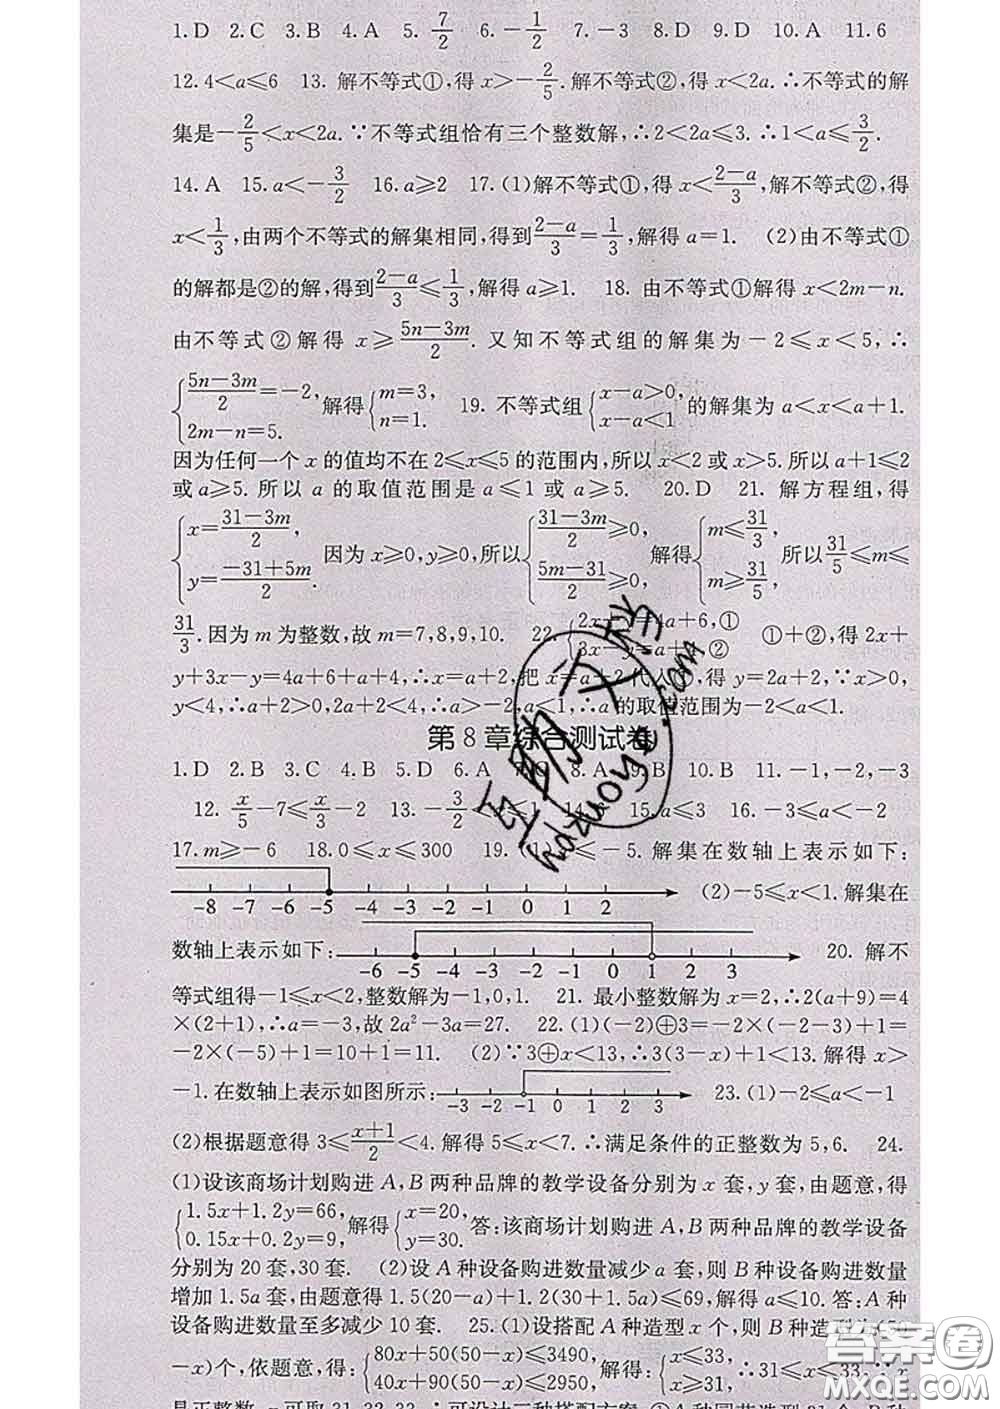 1.D 2.C 3.B 4.A 5.7/2 6.-1/2 7.-3 8.D 9.D 10.A 11.6
12.4<a≤6 13. 解不等式①,得 x>-2/5.解不等式②,得 x<2a.∴不等式的解
集是-2/5<x<2a.∵不等式组恰有三个整数解,∴2<2a≤3.∴1<a≤3/2.
14.A 15.a<-3/2 16.a≥2 17.(1)解不等式①,得 x<(2-a)/3,解不等式②,得
x<1/3,由两个不等式的解集相同,得到(2-a)/3=1/3,解得 a=1. (2)由不等式①
的解都是②的解,得到(2-a)/3≤1/3,解得 a≥1. 18. 由不等式①解得 x<2m-n.
由不等式②解得 x≥(5n-3m)/2. 又知不等式组的解集为-2≤x<5,∴
{(5n-3m)/2=-2, 2m-n=5. 解得{m=3, n=1. 19. 不等式组{x-a>0, x-a<1 的解集为 a<x<a+1.
因为任何一个 x 的值均不在 2≤x≤5 的范围内,所以 x<2 或 x>5.所以 a+1≤2
或 a≥5. 所以 a 的取值范围是 a≤1 或 a≥5. 20.D 21. 解方程组,得
{x=(31-3m)/2, y=(-31+5m)/2. 因为 x≥0,y≥0,所以{(31-3m)/2≥0, (5m-31)/2≥0, 解得{m≤31/3, m≥31/5, 所以31/5≤m≤
31/3.因为 m 为整数,故 m=7,8,9,10. 22. =4a+6,① ② ①+②,得 2x+
y+3x-y=4a+6+a+4,∴x=a+2,把 x=a+2 代入①,得 y=2a+2,∵x>0,
y<4,∴a+2>0,2a+2<4,∴a>-2,a<1,∴a 的取值范围为-2<a<1.
第 8 章综合测试卷
1.D 2.B 3.C 4.B 5.D 6.A 8.A 9.B 10.B 11.-1,-2,-3
12.x/5-7≤x/3-2 13.-3/2 ≤1 15.a≤4 16.-3≤a<-2
17.m≥-6 18.0≤x≤300 19. ≤-5.解集在数轴上表示如下:
-8 -7 -6 -5 -4 -3 -2 -1 0 1 2 (2)-5≤x<1.解集在
数轴上表示如下: -6 -5 -4 -3 -2 -1 0 1 2 3 20. 解不
等式组得-1≤x<2,整数解为-1,0,1. 21. 最小整数解为 x=2,∴2(a+9)=4
×(2+1),∴a=-3,故 2a²-3a=27. 22.(1)(-2)⊕3=-2×(-2-3)+1=
-2×(-5)+1=10+1=11. (2)∵3⊕x<13,∴3(3-x)+1<13.解得 x>
-1.在数轴上表示如图所示: -3 -2 -1 0 1 2 3 23.(1)-2≤a<-1
(2)根据题意得 3≤(x+1)/2<4.解得 5≤x<7.∴满足条件的正整数为 5,6. 24.
(1)设该商场计划购进 A,B 两种品牌的教学设备分别为 x 套,y 套,由题意,得
{1.5x+1.2y=66, 0.15x+0.2y=9, 解得{x=20, y=30. 答:该商场计划购进 A,B 两种品牌的教学设备
分别为 20 套,30 套. (2)设 A 种设备购进数量减少 a 套,则 B 种设备购进数量
增加 1.5a 套,由题意得 1.5(20-a)+1.2(30+1.5a)≤69,解得 a≤10.答:A 种
设备购进数量至多减少 10 套. 25.(1)设搭配 A 种造型 x 个,则 B 种造型为(50
-x)个,依题意,得:{80x+50(50-x)≤3490, 40x+90(50-x)≤2950, 解得:{x≤33, x≥31, ∴31≤x≤33.∵x
是正整数,x 可取 31,32,33,∴可设计三种搭配方案
答案圈
MXQE.COM